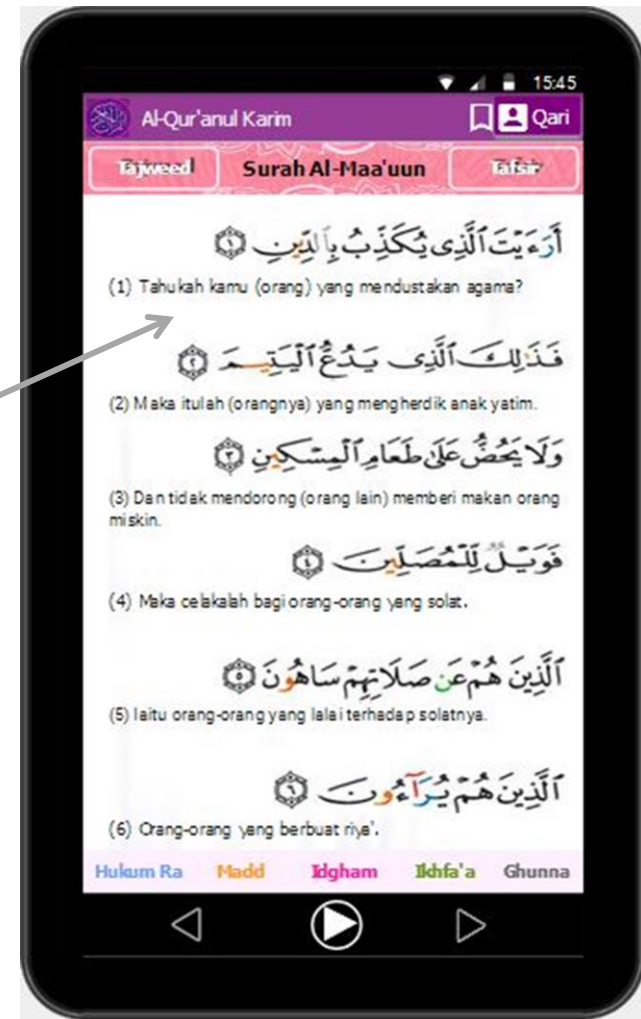 15:45
Al-Qur'anul Karim
Qari
Tajweed
Surah Al-Maa'uun
Tafsir
أَرَءَيْتَ ٱلَّذِى يُكَذِّبُ بِٱلدِّينِ ١
(1) Tahukah kamu (orang) yang mendustakan agama?
فَذَٰلِكَ ٱلَّذِى يَدُعُّ ٱلْيَتِيمَ ٢
(2) Maka itulah (orangnya) yang mengherdik anak yatim.
وَلَا يَحُضُّ عَلَىٰ طَعَامِ ٱلْمِسْكِينِ ٣
(3) Dan tidak mendorong (orang lain) memberi makan orang
miskin.
فَوَيْلٌ لِّلْمُصَلِّينَ ٤
(4) Maka celakalah bagi orang-orang yang solat.
ٱلَّذِينَ هُمْ عَن صَلَاتِهِمْ سَاهُونَ ٥
(5) Iaitu orang-orang yang lalai terhadap solatnya.
ٱلَّذِينَ هُمْ يُرَآءُونَ ٦
(6) Orang-orang yang berbuat riya'.
Hukum Ra Madd Idgham Ikhfa'a Ghunna